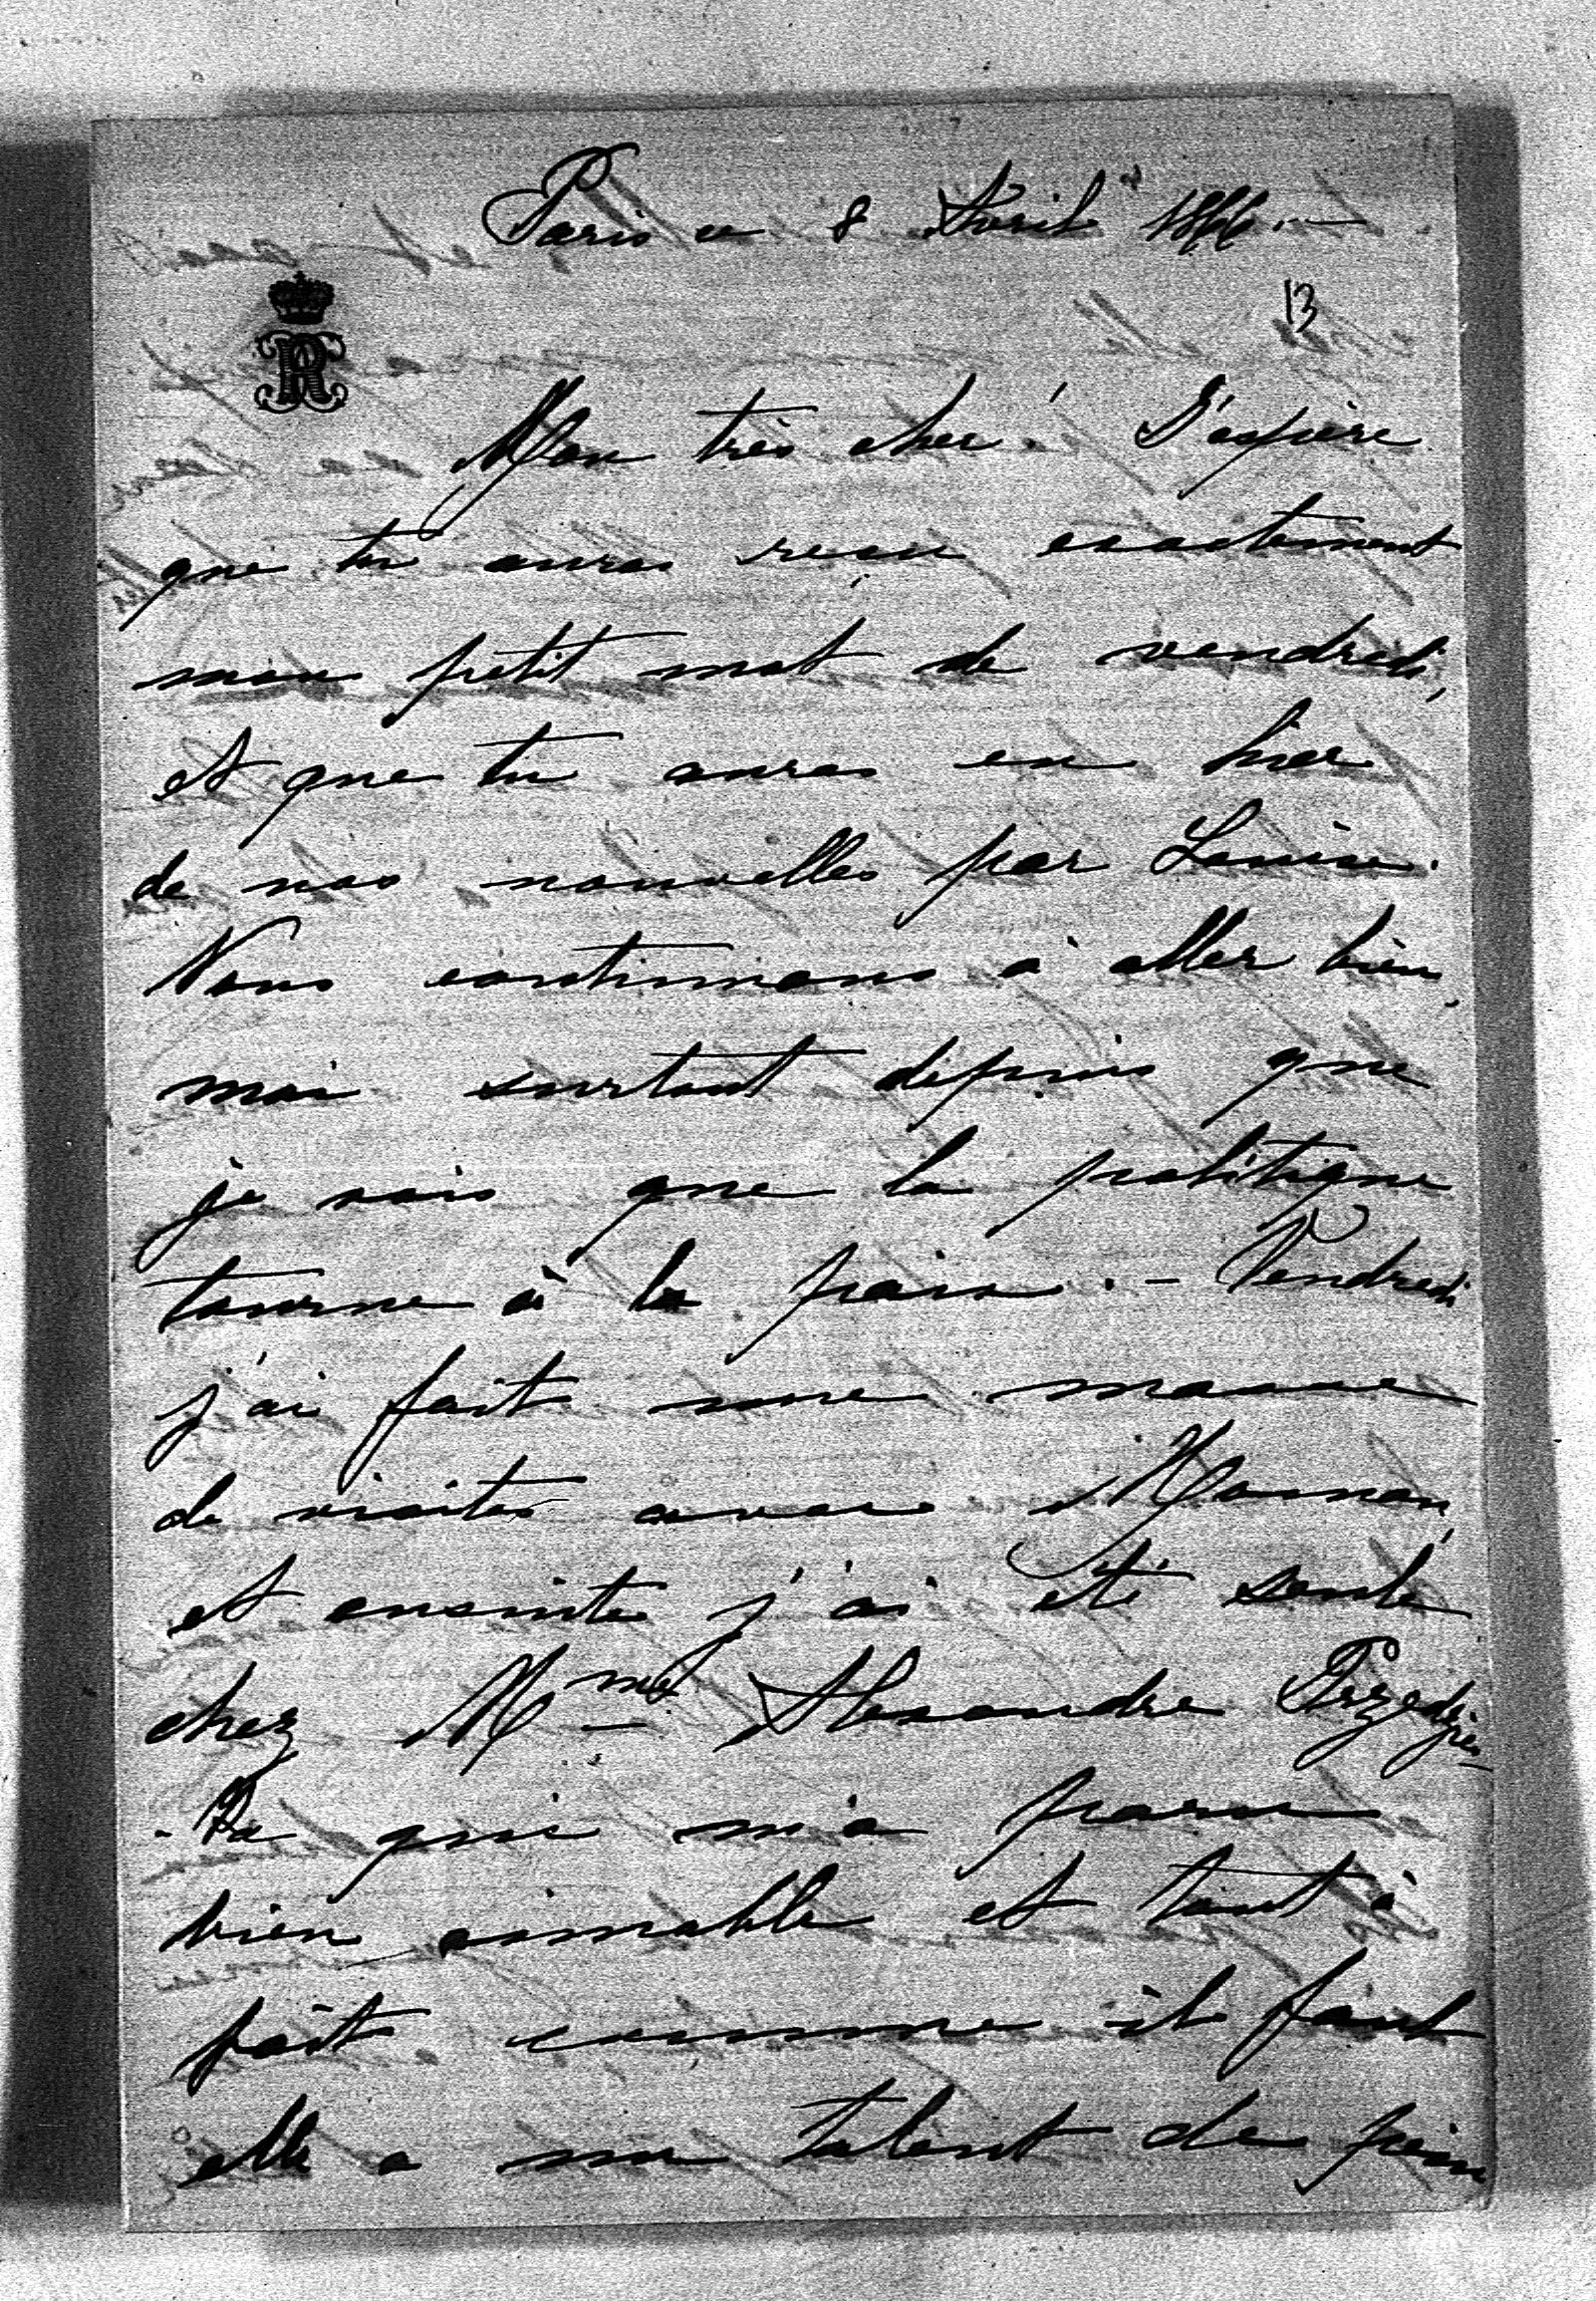 Paris ce 8 Avril 1866.—
13
R
Mon très cher! J'espère
que tu auras reçu exactement
mon petit mot de vendredi,
et que tu auras eu hier
de nos nouvelles par Louise.
Nous continuons à aller bien,
moi surtout depuis que
je vois que la politique
tourne à la paix. — Vendredi
j'ai fait une masse
de visites avec Maman,
et ensuite j'ai été seule
chez Mme Alexandre
qui m'a paru
bien aimable et tout à
fait comme il faut
elle a un talent de pein